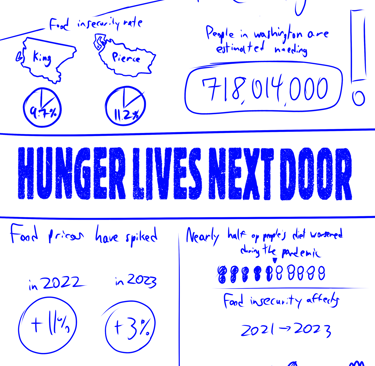 Food insecurity rate
King
Pierce
9.7%
11.2%
People in washington are
estimated needing
718,014,000
HUNGER LIVES NEXT DOOR
Food prices have spiked
in 2022
in 2023
+11%
+3%
Nearly half of people's diet worsened
during the pandemic
Food insecurity affects
2021→2023